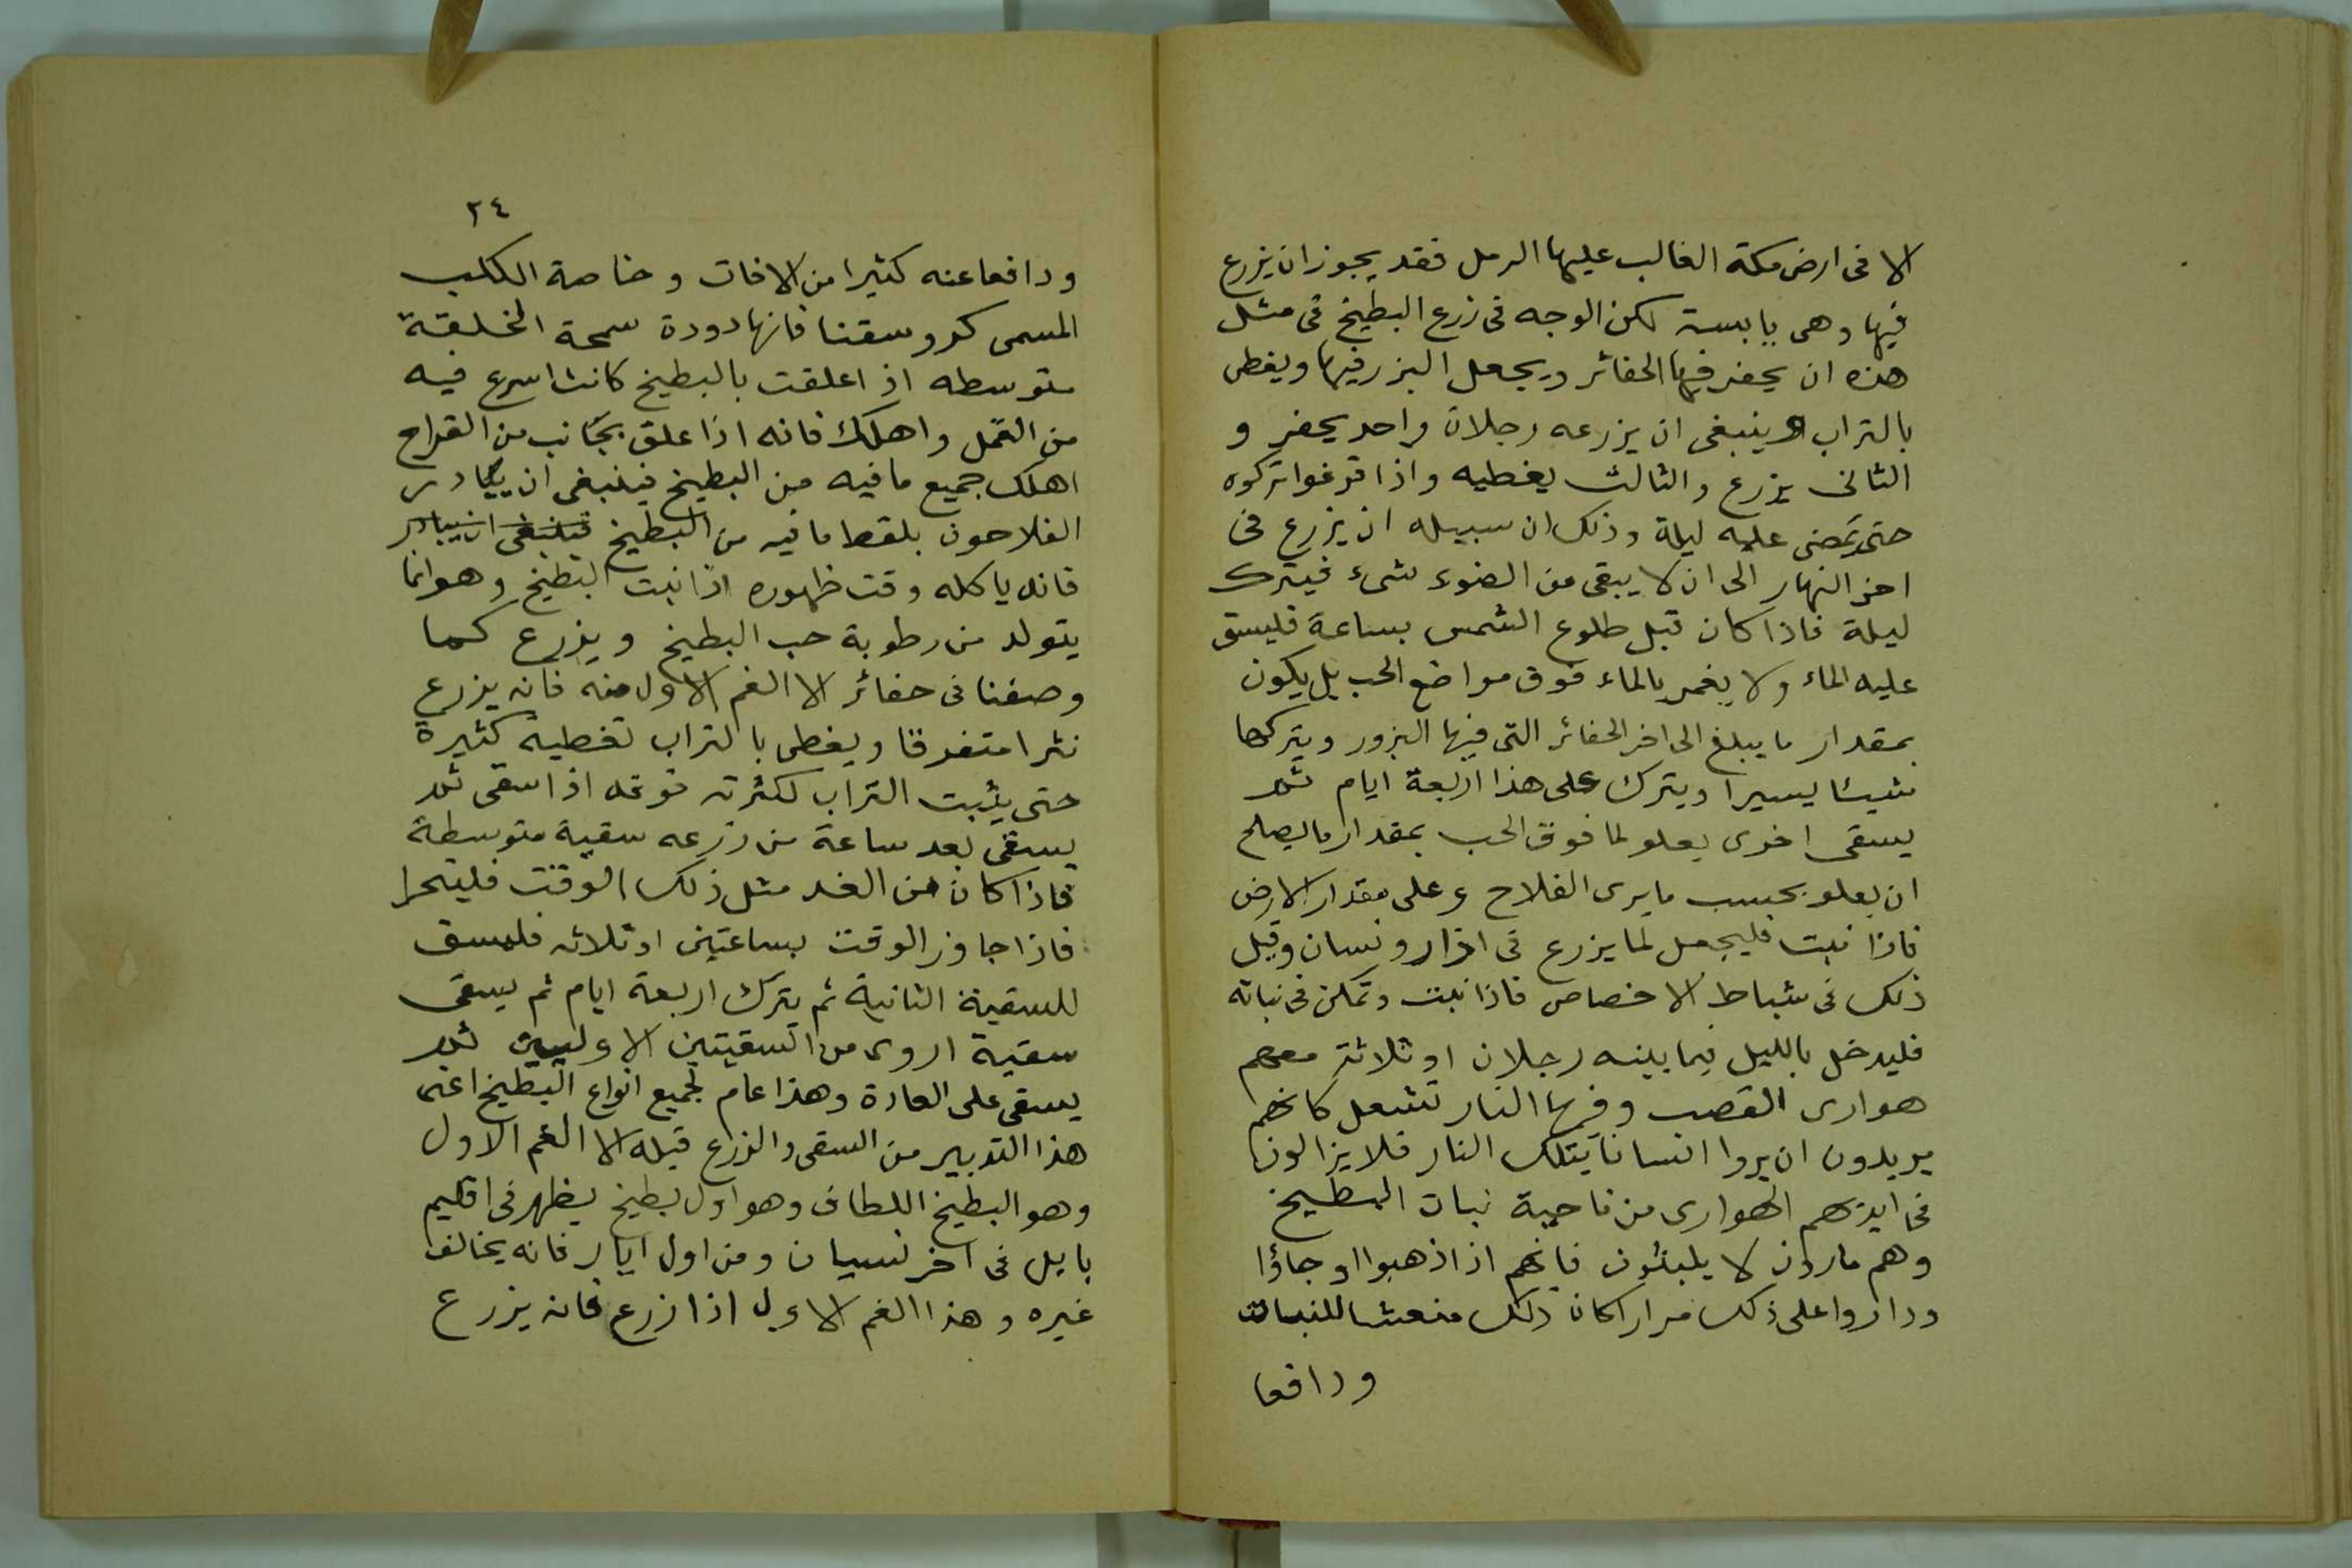 الا فى ارض مكة الغالب عليها الرمل فقد يجوز ان يزرع
فيها وهى يابسة لكن الوجه فى زرع البطيخ فى مثل
هذه ان يحفر فيها الحفائر ويجعل البزر فيها ويغطى
بالتراب وينبغى ان يزرعه رجلان واحد يحفر و
الثانى يزرع والثالث يغطيه واذا فرغوا تركوه
حتى تمضى عليه ليلة وذلك ان سبيله ان يزرع فى
اخر النهار الى ان لا يبقى من الضوء شىء فيترك
ليلة فاذا كان قبل طلوع الشمس بساعة فليسق
عليه الماء ولا يغمر بالماء فوق مواضع الحب بل يكون
بمقدار ما يبلغ الى اخر الحفائر التى فيها البزور ويتركها
شيئا يسيرا ويترك على هذا اربعة ايام ثم
يسقى اخرى يعلو لما فوق الحب بمقدار ما يصلح
ان يعلو بحسب ما يرى الفلاح وعلى مقدار الارض
فاذا نبت فليجعل لما يزرع فى اذار ونسان وقبل
ذلك فى شباط الاخصاص فاذا نبت وتمكن فى نباته
فليدخل بالليل فيما بينه رجلان او ثلاثة معهم
هوارى القصب وفيها النار تشعل كانهم
يريدون ان يروا انسانا بتلك النار فلا يزالون
فى ايديهم الهوارى من ناحية نبات البطيخ
وهم مارون لا يلبثون فانهم اذا ذهبوا او جاؤا
وداروا على ذلك مرارا كان ذلك منعشا للنبات
ودافعا
٢٤
ودافعا عنه كثيرا من الافات وخاصة الكلب
المسمى كروسقنا فانها دودة سمحة الخلقة
متوسطه اذا علقت بالبطيخ كانت اسرع فيه
من القمل واهلك فانه اذا علق بجانب من القراح
اهلك جميع ما فيه من البطيخ فينبغى ان يبادر
الفلاحون بلقط ما فيه من البطيخ فينبغى ان يبادر
فانه ياكله وقت ظهوره اذا نبت البطيخ وهو انما
يتولد من رطوبة حب البطيخ ويزرع كما
وصفنا فى حفائر الا الغم الاول منه فانه يزرع
نثرا متفرقا ويغطى بالتراب تغطيه كثيرة
حتى يثبت التراب لكثرته فوقه اذا سقى ثم
يسقى بعد ساعة من زرعه سقية متوسطة
فاذا كان من الغد مثل ذلك الوقت فليتحرا
فاذا جاوز الوقت بساعتين او ثلاثه فليسق
للسقية الثانية ثم يترك اربعة ايام ثم يسقى
سقية اروى من السقيتين الاوليين ثم
يسقى على العادة وهذا عام لجميع انواع البطيخ اعنى
هذا التدبير من السقى والزرع قبله الا الغم الاول
وهو البطيخ اللطاف وهو اول بطيخ يظهر فى اقليم
بابل فى اخر نسيان ومن اول ايار فانه يخالف
غيره وهذا الغم الاول اذا زرع فانه يزرع